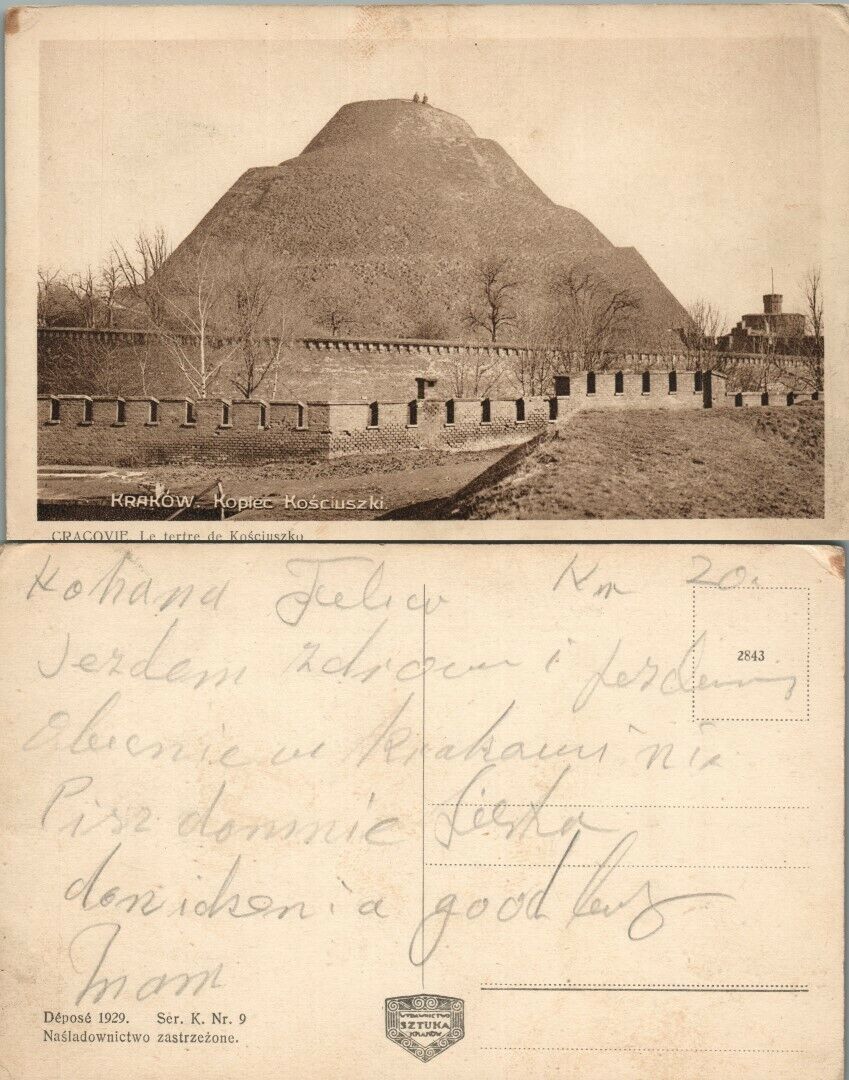 KRAKÓW. Kopiec Kościuszki.
CRACOVIE. Le tertre de Kościuszko
Kohana
Jezdem zdrowu i jezdem
Obecnie w Krakowi ni
Pisz domnie
dozidzenia good by
2843
Déposé 1929. Ser. K. Nr. 9
Naśladownictwo zastrzeżone.
WYDAWNICTWO
SZTUKA
KRAKÓW